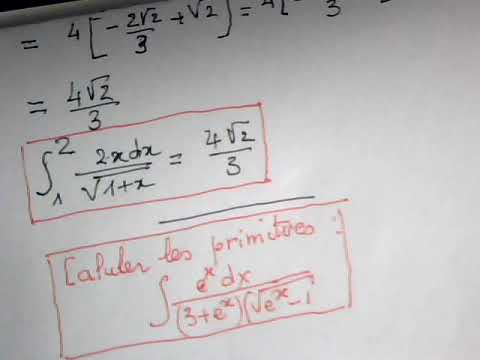 = 4[-2√2/3 + √2] = 4[- 3
= 4√2/3
∫₁² 2x dx/√1+x = 4√2/3
Calculer les primitives :
∫ e^x dx/(3+e^x)(√e^x-1